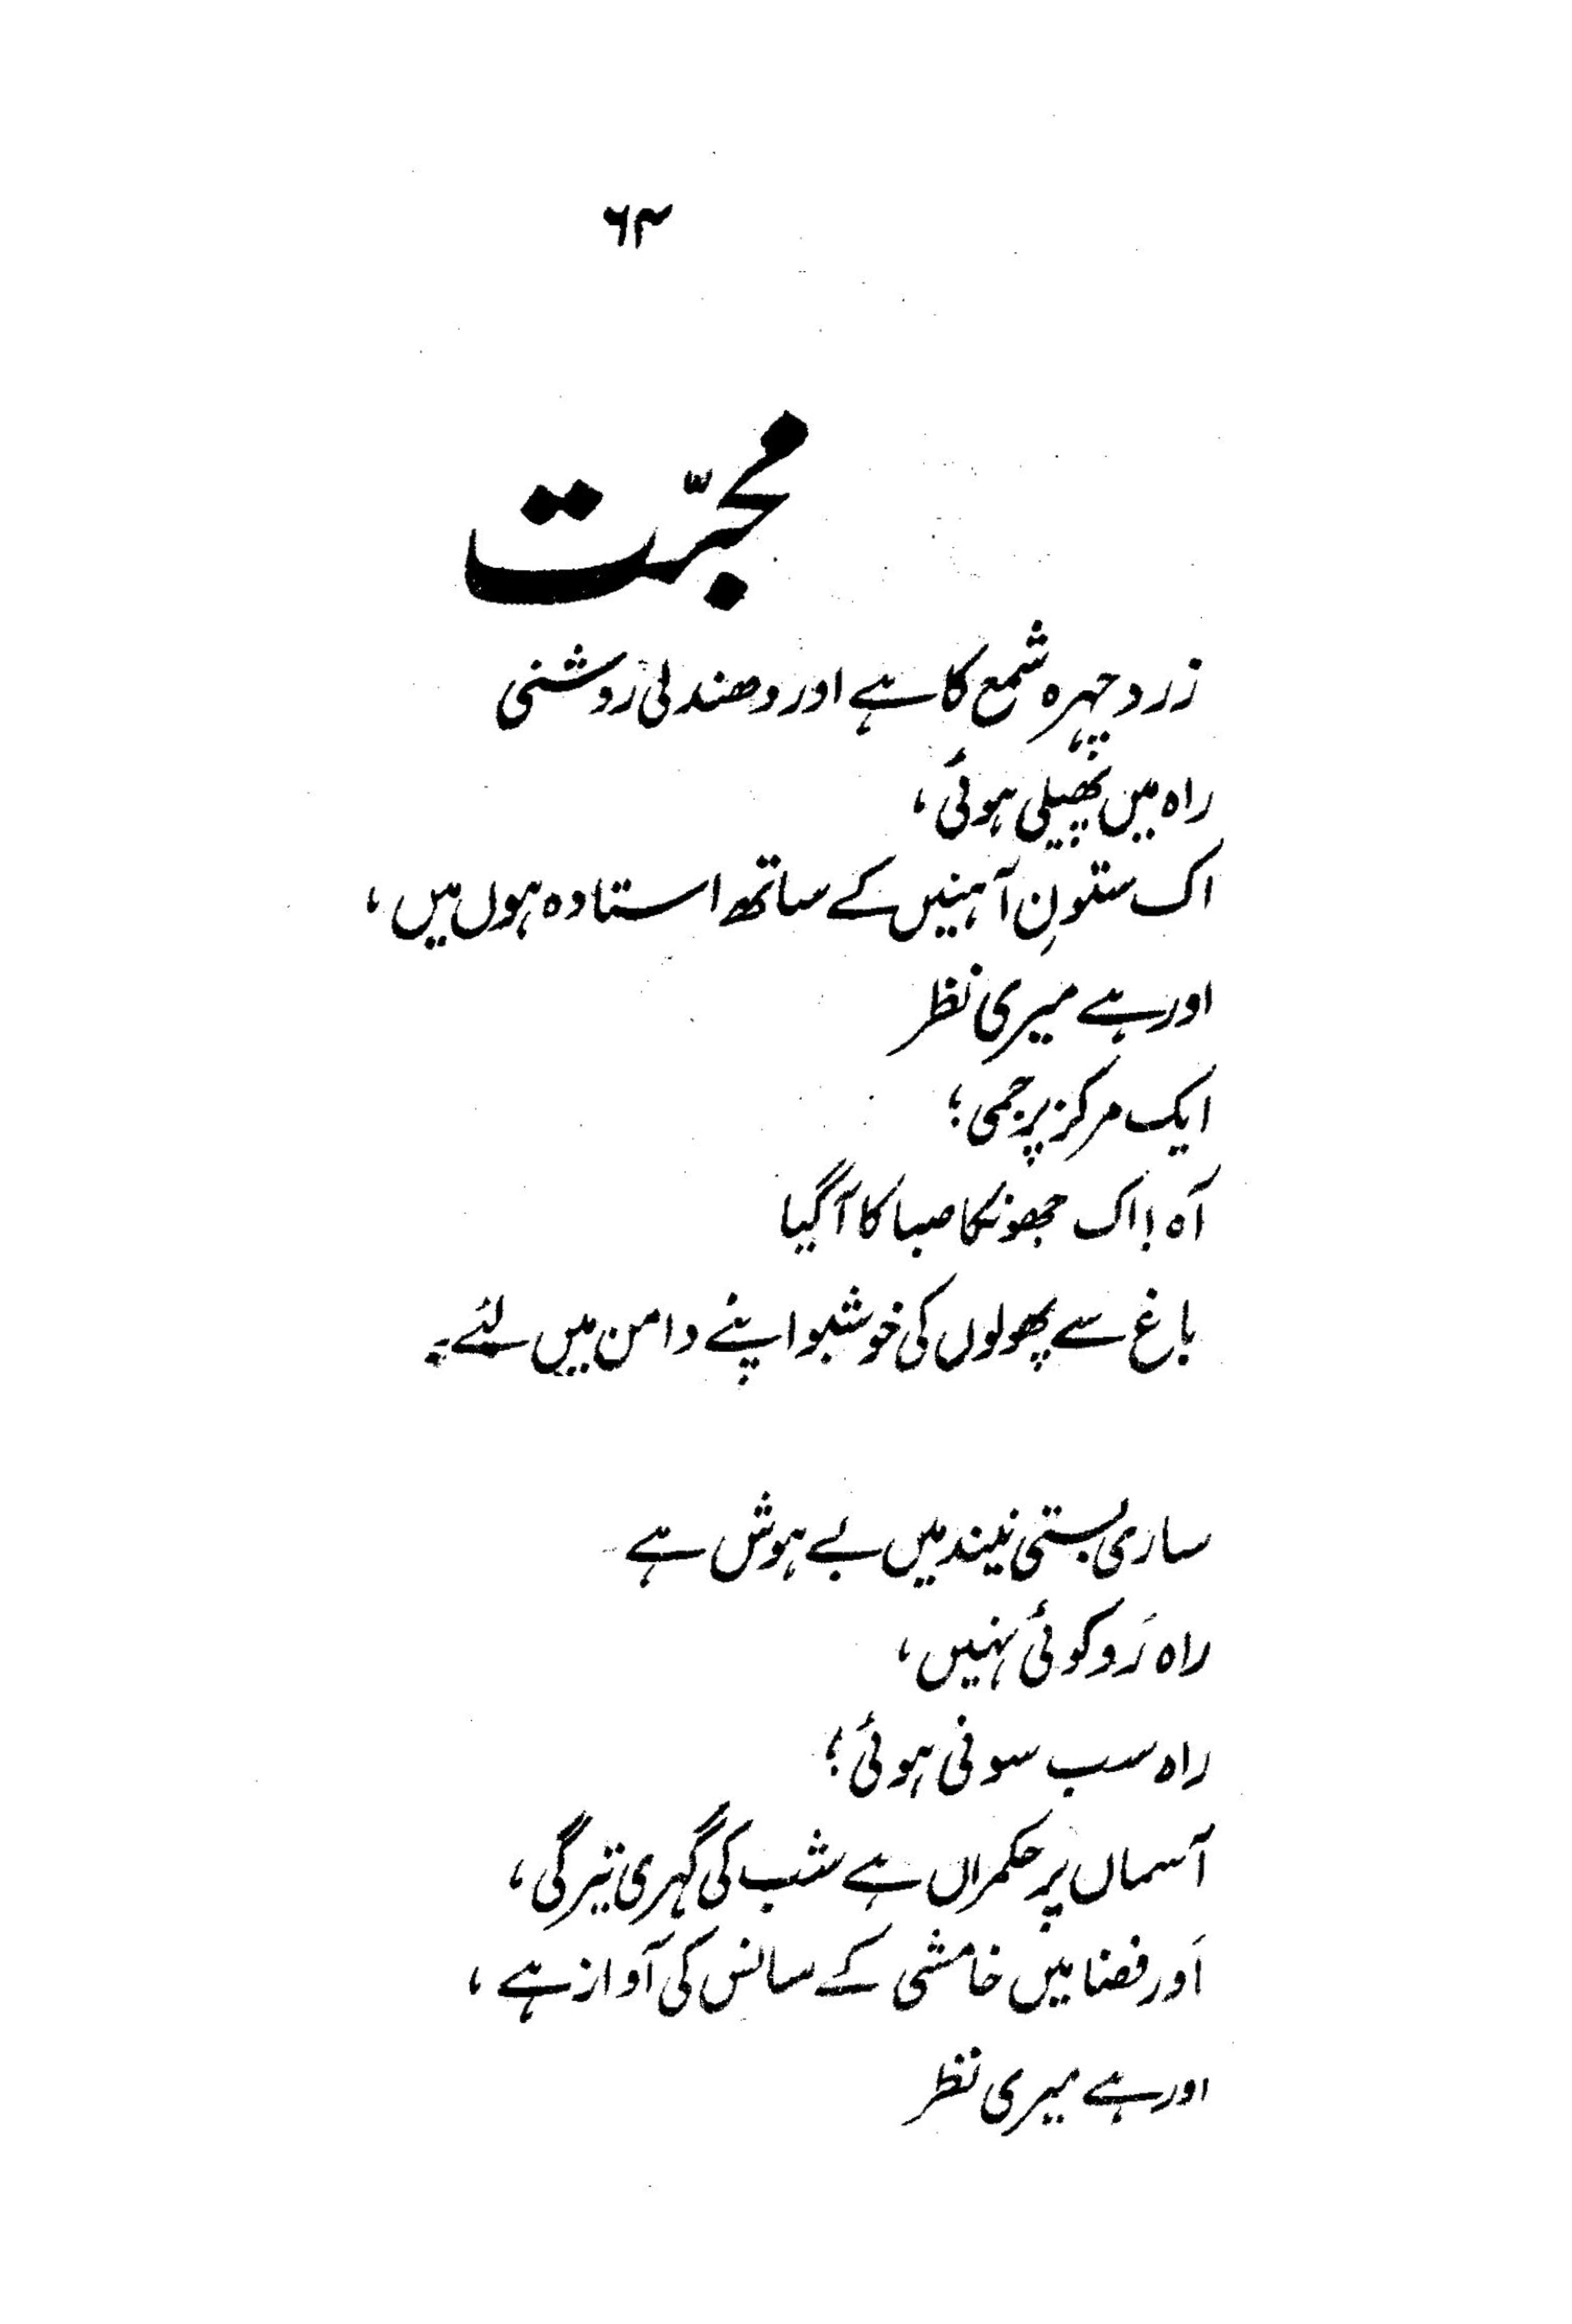 ۶۳
محبّت
زرد چہرہ شمع کا ہے اور دھندلی روشنی
راہ میں پھیلی ہوئی،
اک ستونِ آہنیں کے ساتھ استادہ ہوں میں،
اور ہے میری نظر
ایک مرکز پر جمی؛
آہ! اک جھونکا صبا کا آ گیا
باغ سے پھولوں کی خوشبو اپنے دامن میں لئے۔
ساری بستی نیند میں بے ہوش ہے
راہ رَو کوئی نہیں،
راہ سب سونی ہوئی؛
آسماں پر حکمراں ہے شب کی گہری تیرگی،
اَور فضا میں خامشی کے سانس کی آواز ہے،
اور ہے میری نظر